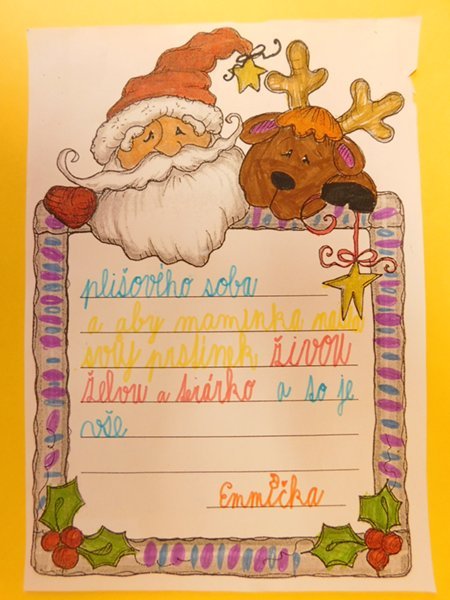 plišového soba
a aby maminka
svůj prstínek živou
želvu a terárko a to je
vše
Emmička